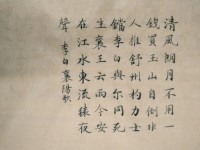 清風朗月不用一
錢買玉山自倒非
人推舒州杓力士
鐺李白與尔同死
生襄王云雨今安
在江水東流猿夜
聲 李白襄陽歌